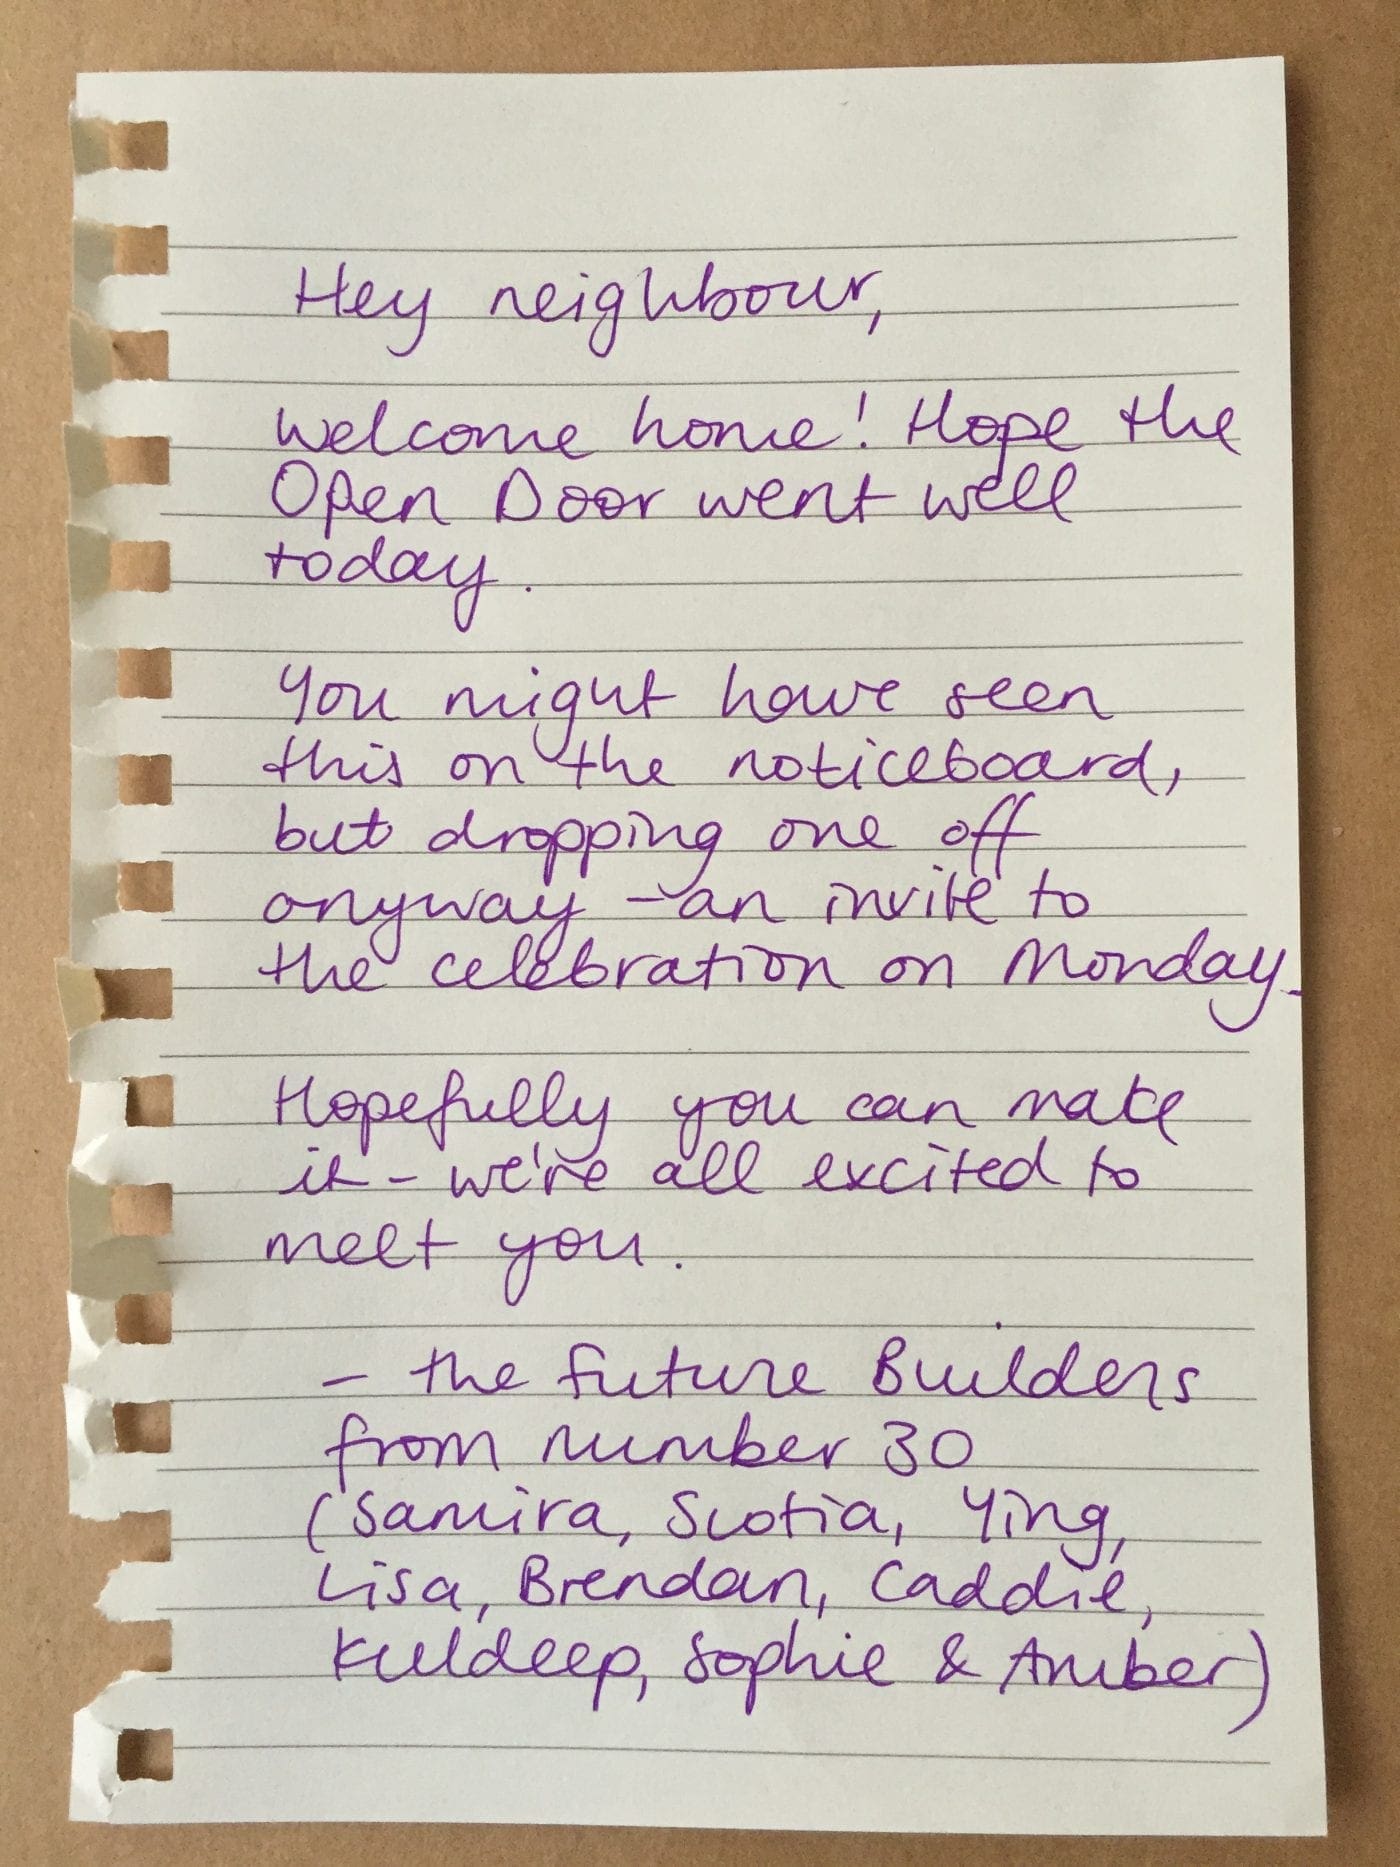 Hey neighbour,
Welcome home! Hope the
Open Door went well
today.
You might have seen
this on the noticeboard,
but dropping one off
anyway - an invite to
the celebration on Monday.
Hopefully you can make
it - we're all excited to
meet you.
- the Future Builders
from number 30
(Samira, Scotia, Ying,
Lisa, Brendan, Caddie,
Kuldeep, Sophie & Amber)